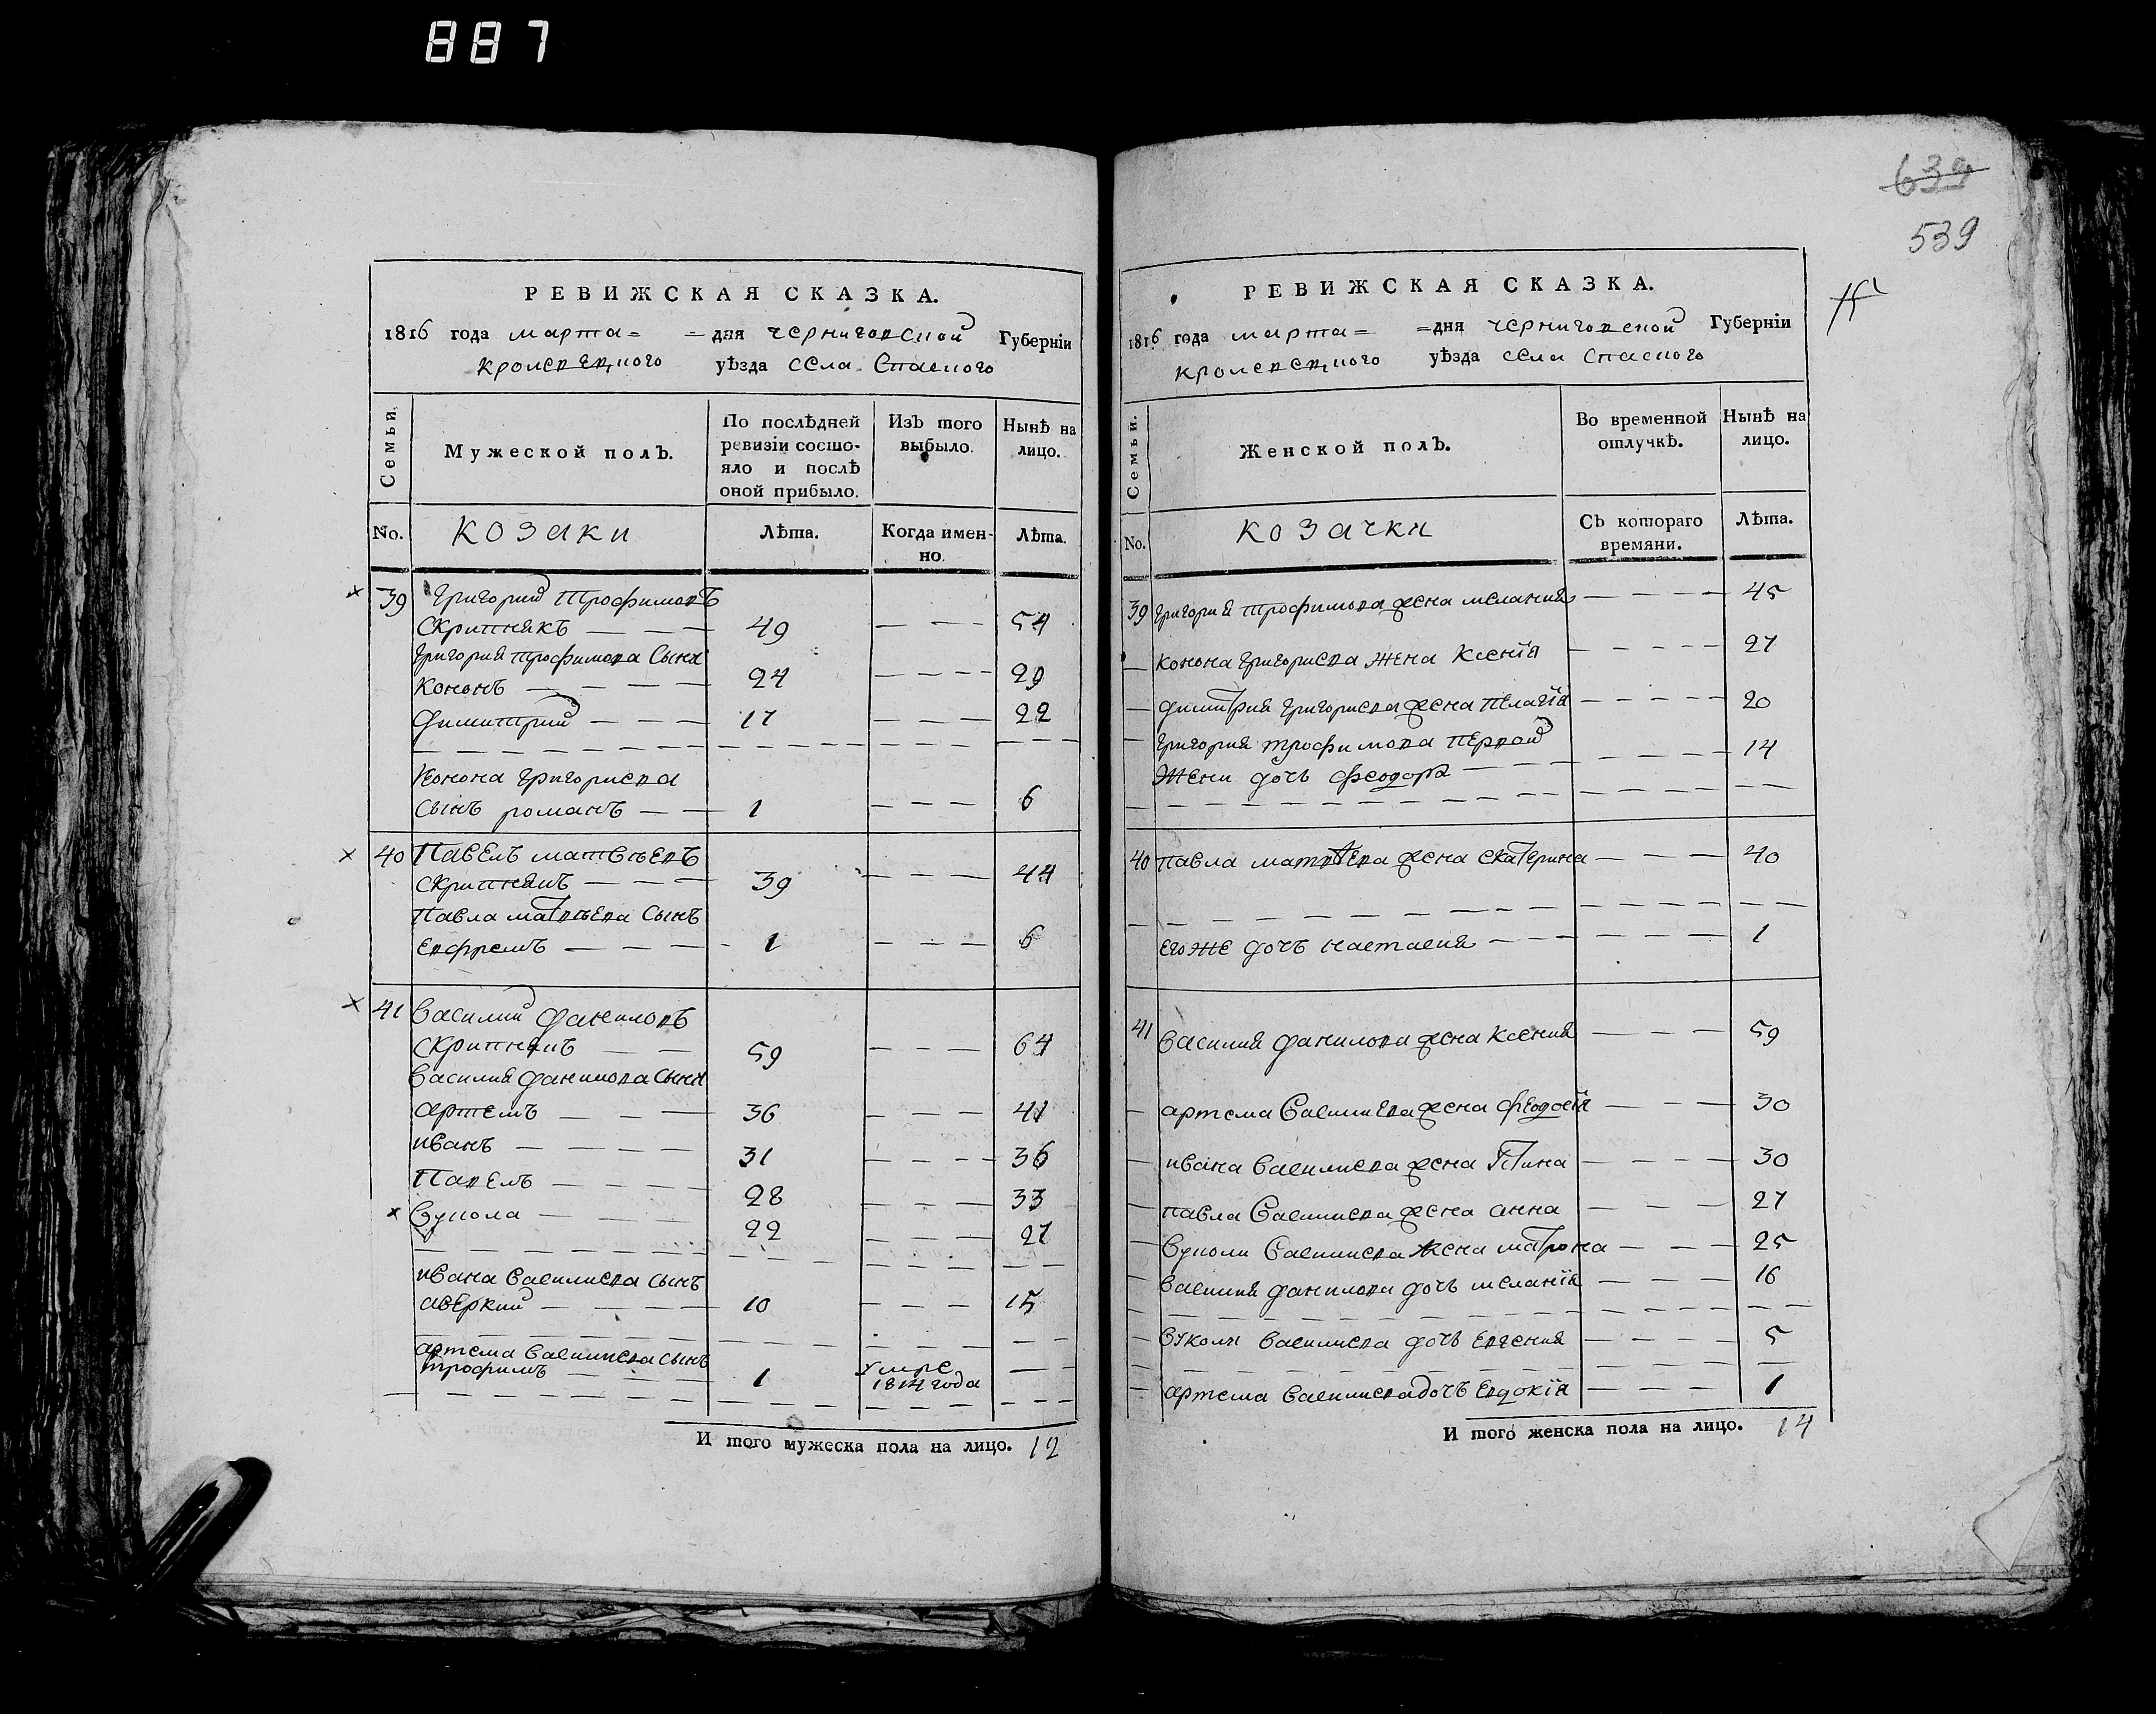 887
639
539
РЕВИЖСКАЯ СКАЗКА.
1816 года марта = = дня черниговской Губерніи
кролевецкого уѣзда села Спаского
Семьи.
Мужеской полъ.
По послѣдней ревизіи состо-
яло и послѣ
оной прибыло.
Изъ того
выбыло.
Нынѣ на
лицо.
No. козаки Лѣта. Когда имен-
но. Лѣта.
39 Григорий Трофимовъ
Скрипнякъ — — — 49 — — — 54
Григория трофимова Сыня
кононъ — — — — 24 — — — — 29
димитрий — — — 17 — — — 22
конона григориева
сынъ романъ — — 1 — — — 6
40 Павелъ матвѣевъ
скрипнякъ — — — 39 — — — — 44
Павла матвѣева Сынъ
Евфремъ — — — — 1 — — — 6
41 Василий даниловъ
скрипнякъ — — 59 — — — 64
Василия данилова Сыня
артемъ — — — 36 — — — 41
иванъ — — — — 31 — — — — 36
Павелъ — — — — 28 — — — 33
Вукола — — — — 22 — — — 27
ивана Василиева сынъ
аверкий — — — — 10 — — — 15
артема Василиева сынъ
трофимъ — — — 1 умре
1814 года — —
И того мужеска пола на лицо. 12
РЕВИЖСКАЯ СКАЗКА.
1816 года марта = = дня черниговской Губерніи
кролевецкого уѣзда села Спаского
Семьи.
Женской полъ.
Во временной
отлучкѣ.
Нынѣ на
лицо.
No. козачки Съ котораго
времяни. Лѣта.
39 Григория трофимова жена мелания — — — — 45
— конона григориева жена ксенія — — — — 27
— димитрия григориева жена пелагія — — — — 20
— григория трофимова первой
жени дочь феодора — — — — 14
40 павла матвѣева жена екатерина — — — 40
— егоже дочъ настасия — — — — — — 1
41 Василия данилова жена ксения — — — 59
— артема Василиева жена феодосія — — — 30
— ивана Василиева жена — — — — 30
— павла Василиева жена анна — — — 27
— Вуколи Василиева жена матрона — — — 25
— Василия данилова дочъ меланія — — — 16
— Вуколи Василиева дочъ евгения — — — — 5
— артема Василиева дочъ евдокія — — — 1
И того женска пола на лицо. 14